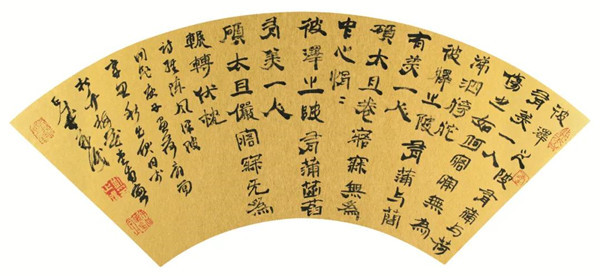 彼澤之陂有蒲與荷
有美一人
傷之如何寤寐無為
涕泗滂沱
彼澤之陂有蒲與蕳
有美一人
碩大且卷寤寐無為
中心悁〻
彼澤之陂有蒲菡萏
有美一人
碩大且儼寤寐無為
輾轉伏枕
詩經陳風澤陂